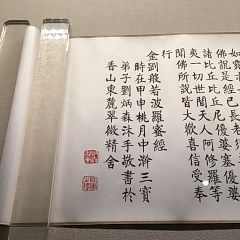 如露
佛說是經已
諸比丘比丘尼優婆塞優婆
夷一切世間天人阿修羅等
聞佛所說皆大歡喜信受奉
行
金剛般若波羅蜜經
時在甲申桃月中澣三寶
弟子劉炳森沐手敬書於
香山東麓翠微精舍